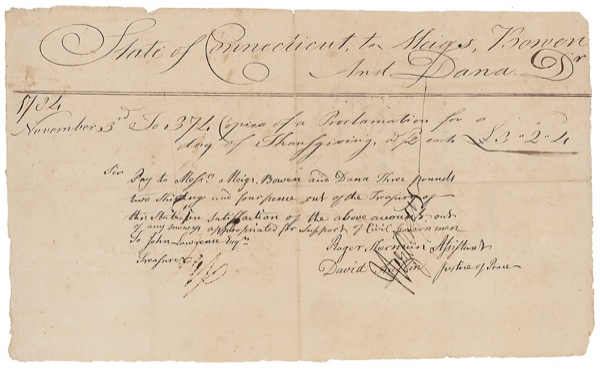 State of Connecticut, to Meigs, Bowen
And Dana Dr
1784
November 3rd To 374 Copies of a Proclamation for a
day of Thanksgiving, @ 2 each £3" 2" 4
Sir
Pay to Messrs Meigs, Bowen and Dana Three pounds
two Shillings and four pence out of the Treasury of
this State in Satisfaction of the above account, out
of any moneys appropriated for Support of Civil Government
To John Lawrence Esqr
Treasurer
Roger Sherman Assistant
David Austin Justice of Peace